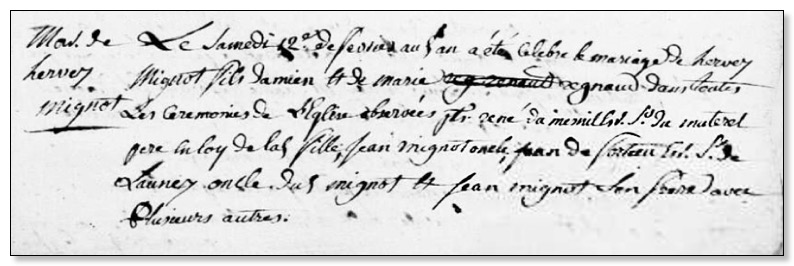 Mar. de
hervey
mignot
Le Samedi 12e de fevrier aud an a été Celebré le mariage de hervey
Mignot fils damien et de marie regnaud dans toutes
Les Ceremonies de LEglise observées pts. rené
pere en loy de lad fille, Jean mignot oncle, Jean de Sr. de
Launey oncle dud mignot et Jean mignot son frere avec
Plusieurs autres.